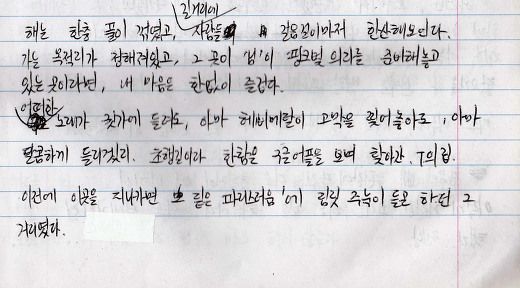 길거리에
해는 한층 풀이 꺾였고, 사람들 걸음걸이마저 한산해보인다.
가는 목적지가 정해져있고, 그 곳이 '님'이 핑크빛 의리를 준비해놓고
있는 곳이라면, 내 마음은 한없이 즐겁다.
어떠한
노래가 귓가에 들려도, 아마 헤비메탈이 고막을 찢어놓아도, 아마
달콤하게 들리겠지. 초행길이라 한참을 구글어플을 보며 찾아간, T의 집.
이전에 이곳을 지나가면 그 짙은 '파리스러움'에 흠칫 주눅이 들곤 하던 그
거리였다.